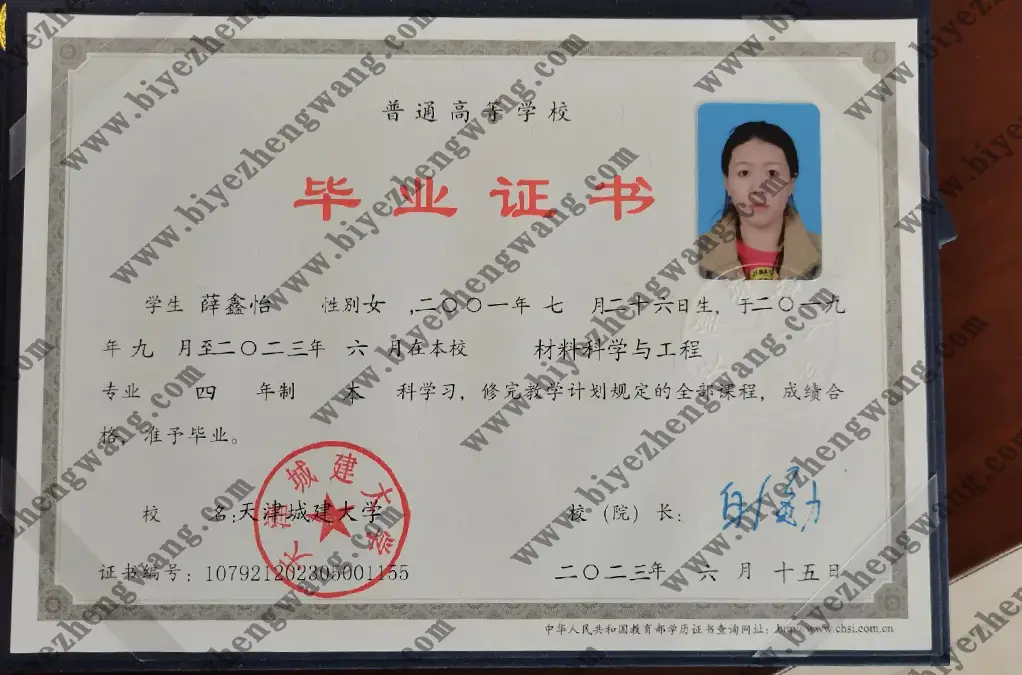 普通高等学校
毕业证书
学生 薛鑫怡 性别女 ,二〇〇一年 七 月二十六日生，于二〇一九
年 九 月至二〇二三年 六 月在本校 材料科学与工程
专业 四 年制 本 科学习，修完教学计划规定的全部课程，成绩合
格，准予毕业。
校 名:天津城建大学 校（院）长：
天津城建大学
证书编号：107921202305001155 二〇二三年 六 月 十五日
中华人民共和国教育部学历证书查询网址：http://www.chsi.com.cn
www.biyezhengwang.com